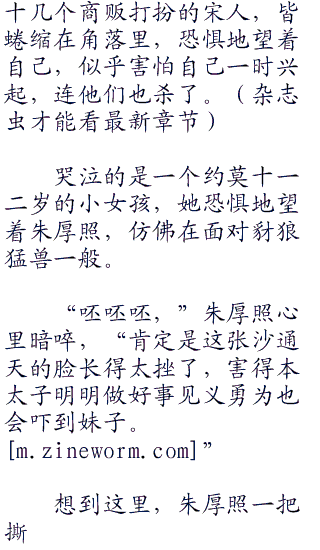 十几个商贩打扮的宋人，皆
蜷缩在角落里，恐惧地望着
自己，似乎害怕自己一时兴
起，连他们也杀了。（杂志
虫才能看最新章节）
哭泣的是一个约莫十一
二岁的小女孩，她恐惧地望
着朱厚照，仿佛在面对豺狼
猛兽一般。
“呸呸呸，”朱厚照心
里暗啐，“肯定是这张沙通
天的脸长得太挫了，害得本
太子明明做好事见义勇为也
会吓到妹子。
[m.zineworm.com]”
想到这里，朱厚照一把
撕